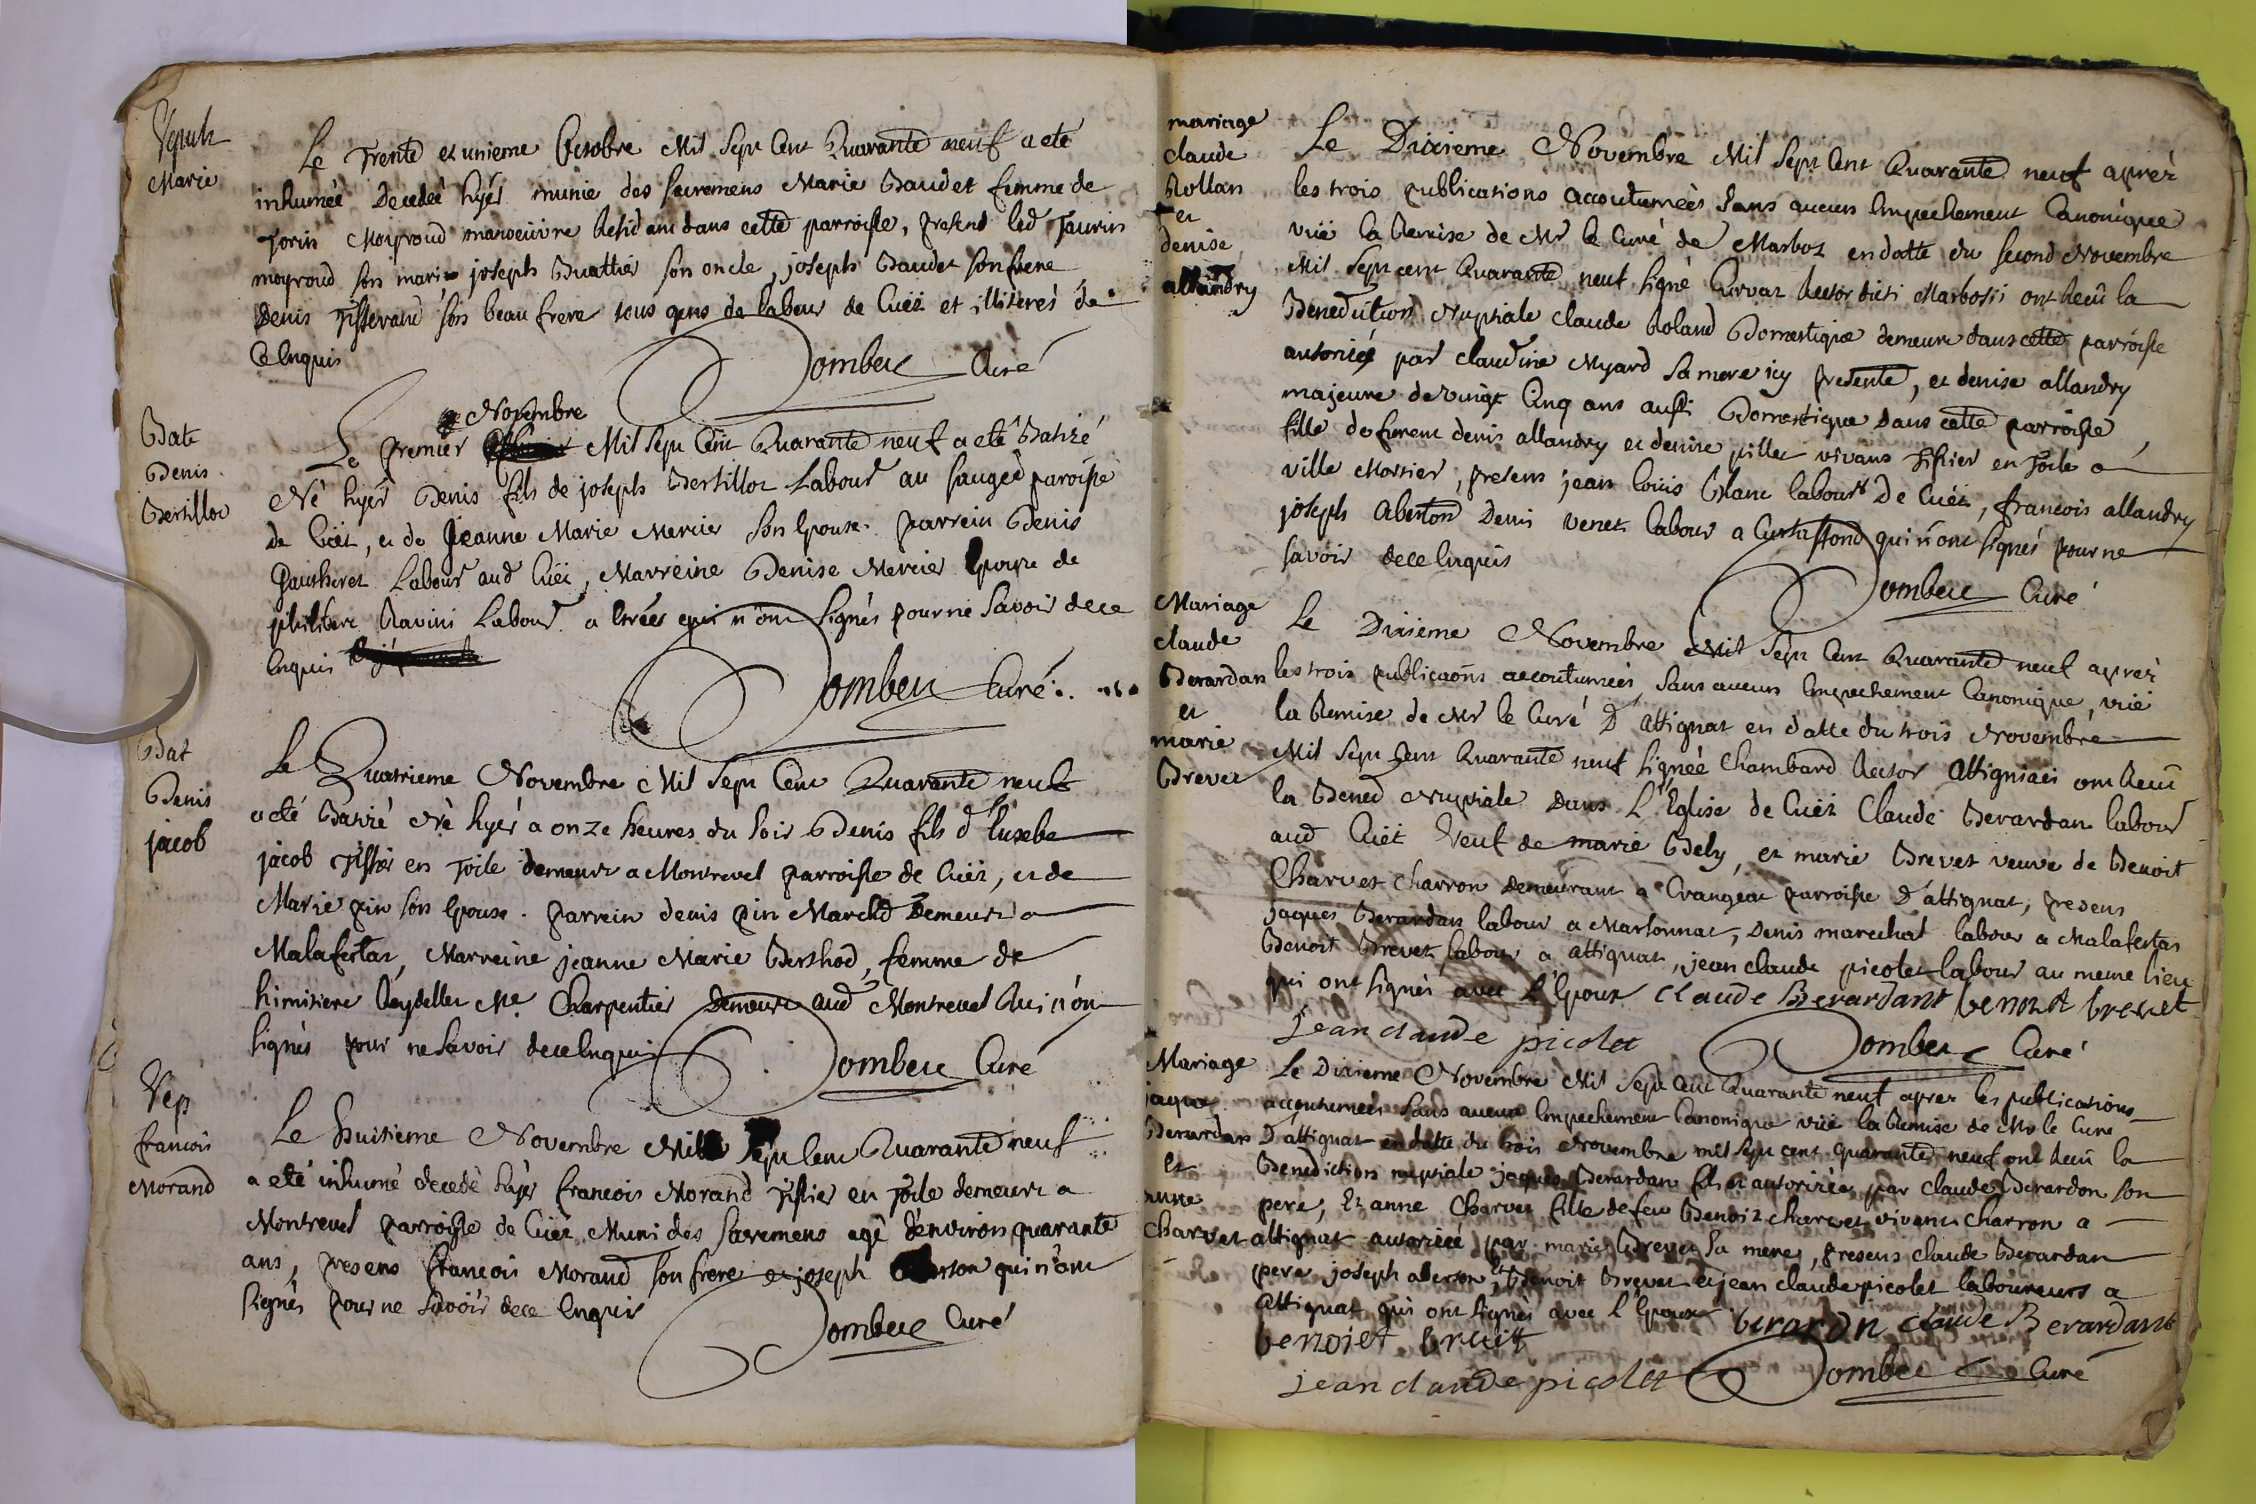 Sepult
Marie
Le Trente et unieme Octobre Mil Sept Cent Quarante neuf a eté
inhumée Decedeé hyér munie des sacremens Marie Baudet femme de
Torin Moyroud manoeuvre Residant dans cette parroisse, present led Taurin
moyroud son mari joseph Buattier son oncle, joseph Baudet son frere
Denis Tisserand son beau frere tous gens de labeur de Cuët et illiterés de
Ce Enquis
Dombey Curé
Bate
Denis
Bertillot
Novembre
Le premier Mil Sept Cent Quarante neuf a eté Batizé
Né hyér Denis fils de joseph Bertillot Labour au Sauged paroisse
de Cüet, et de Jeanne Marie Mercier son Epouse. parrein Denis
Gautheret Labour aud Cüet, Marreine Denise Mercier Epouse de
philibert Ravini Labour a Etrées qui n'ont signés pour ne savoir de ce
Enquis
Dombey Curé
Bat
Denis
jacob
Le Quatrieme Novembre Mil Sept Cent Quarante neuf
a eté Batizé Né hyér a onze heures du soir Denis fils d'Eusebe
jacob Tissier en Toile demeurt a Montrevel parroisse de Cüet, et de
Marie pin son Epouse. parrein denis pin Marchd Demeurt a
Malafertas, Marreine jeanne Marie Berthod, femme de
himitiere Reydellet Me Charpentier Demeurt aud Montrevel Qui n'ont
signés pour ne savoir de ce Enquis
Dombey Curé
Sep
francois
Morand
Le Huitieme Novembre Mil Sept Cent Quarante neuf
a eté inhumé decedé hyér francois Morand Tissier en Toile demeurt a
Montrevel parroisse de Cüet Muni des Sacremens agé d'environ quarante
ans, presens francois Morand son frere et joseph qui n'ont
signés pour ne savoir de ce Enquis
Dombey Curé
mariage
claude
Rollan
et
denise
allandry
Le Dixieme Novembre Mil Sept Cent Quarante neuf aprèz
les trois publications accoutumeés sans aucun Empechement Canonique
vüe la Remise de Mr le Curé de Marboz en datte du second Novembre
Mil sept cent Quarante neuf signé Curvat Rector dicti Marbosii ont Recü la
Benediction Nuptiale claude Roland Domestique demeurt dans cette parroisse
autorizé par claudine Myard sa mere icy presente, et denise allandry
majeure de vingt Cinq ans aussi Domestique dans cette parroisse
fille de furent denis allandry et denise pillet vivans Tissier en Toile a
ville Mottier, presens jean louis blanc labourr De Cüet, francois allandry
joseph Aberton Denis Venet labour a Curtaffond qui n'ont signés pour ne
savoir de ce Enquis
Dombey Curé
Mariage
claude
Berardan
et
marie
Brevet
Le Dixieme Novembre Mil Sept Cent Quarante neuf aprèz
les trois publicaons accoutumeés, sans aucun Empechement Canonique, vüe
la Remise de Mr le Curé D'attignat en datte du trois Novembre
Mil Sept Cent Quarante neuf signée Chambard Rector Attigniaci ont Recü
la Bened Nuptiale Dans L'Eglise de Cüet Claude Berardan labour
aud Cüet Veuf de marie Bely, et marie Brevet veuve de Benoit
Charvet Charron Demeurant a Crangeat parroisse D'attignat, presens
jaques Berardan labour a Marsonnat, Denis marechal labour a Malafertas
Benoit Brevet labour a attignat, jean claude picolet labour au meme lieu
qui ont signés avec l'Epoux claude Berardant benoit brevet
jean claude picolet
Dombey Curé
Mariage
jaque
Berardan
et
anne
Charvet
Le Dixieme Novembre Mil Sept Cent Quarante neuf aprez les publications
accoutumeés sans aucun Empechement Canonique vüe la Remise de Mr le Curé
D'attignat en datte du trois Novembre mil sept cent quarante neuf ont Recü la
Benediction nuptiale jaques Berardan fils et autorizée par claude Berardon son
pere, Et anne Charvet fille de feu Benoit charvet vivant Charron a
attignat autorizeé par marie Brevet sa mere, presens claude Berardan
pere joseph aberton, et Benoit Brevet et jean claude picolet laboureurs a
Attignat qui ont signés avec l'Epoux
berardn claude Berardant
benoiet brevet
jean claude picolet
Dombey Curé